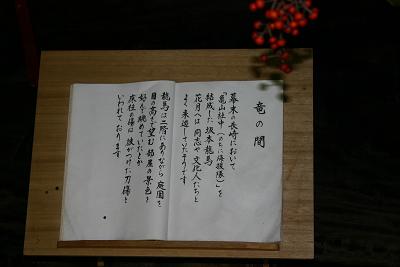 竜の間
幕末の長崎において
「亀山社中(のちに海援隊)」を
結成した坂本龍馬
花月へは同志や文化人たちと
よく来遊していたそうです
龍馬は二階にありながら庭園を
目の高さに望む部屋の景色を
好んで眺めていたとか
床柱の傷は彼がつけた刀傷と
いわれております